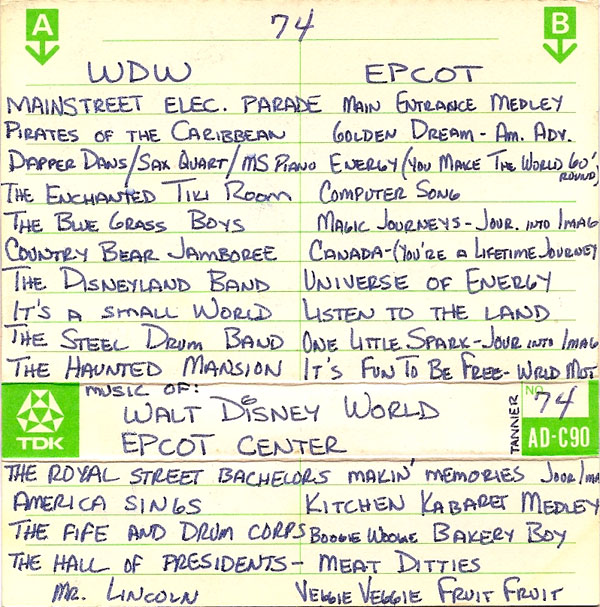 A 74 B
WDW EPCOT
MAINSTREET ELEC. PARADE MAIN ENTRANCE MEDLEY
PIRATES OF THE CARIBBEAN GOLDEN DREAM - AM. ADV.
DAPPER DANS/SAX QUART/MS PIANO ENERGY (YOU MAKE THE WORLD GO 'ROUND)
THE ENCHANTED TIKI ROOM COMPUTER SONG
THE BLUE GRASS BOYS MAGIC JOURNEYS - JOUR. INTO IMAG
COUNTRY BEAR JAMBOREE CANADA - (YOU'RE A LIFETIME JOURNEY
THE DISNEYLAND BAND UNIVERSE OF ENERGY
IT'S A SMALL WORLD LISTEN TO THE LAND
THE STEEL DRUM BAND ONE LITTLE SPARK - JOUR INTO IMAG
THE HAUNTED MANSION IT'S FUN TO BE FREE - WRLD MOT
MUSIC OF:
WALT DISNEY WORLD
EPCOT CENTER
TDK
TANNER
NO. 74
AD-C90
THE ROYAL STREET BACHELORS MAKIN' MEMORIES JOUR/IMA
AMERICA SINGS KITCHEN KABARET MEDLEY
THE FIFE AND DRUM CORPS BOOGIE WOOGIE BAKERY BOY
THE HALL OF PRESIDENTS - MEAT DITTIES
MR. LINCOLN VEGGIE VEGGIE FRUIT FRUIT